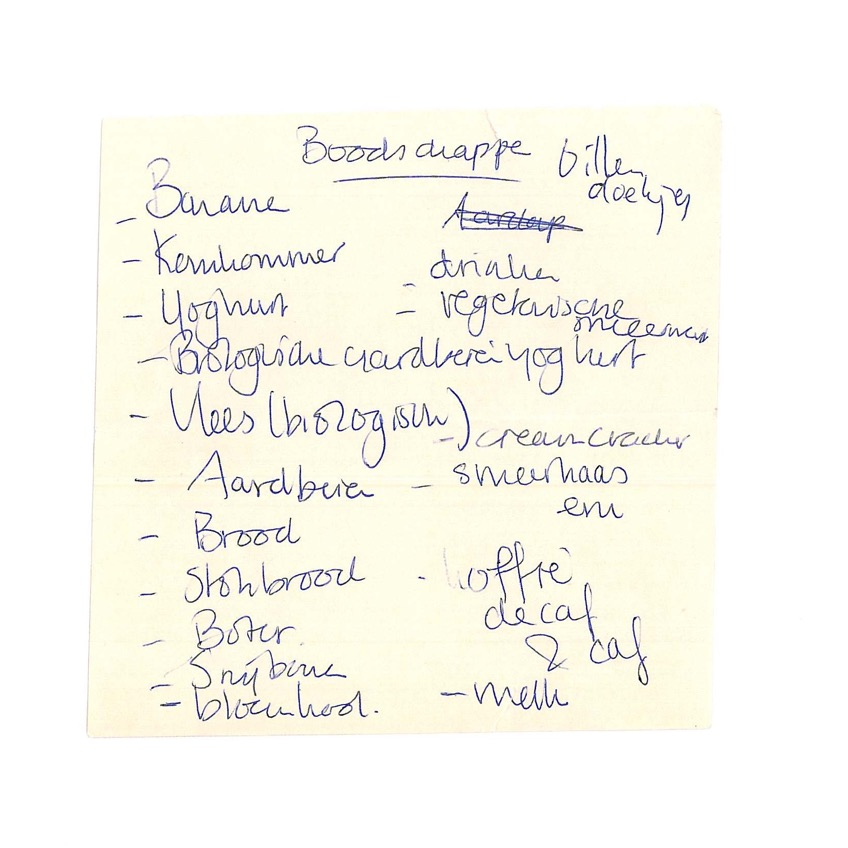 Boodschappe
billen
doekjes
- Banane
- Komkommer
- Yoghurt
- Biologische aardbeei yoghurt
- Vlees (biologisch)
- Aardbeie
- Brood
- Stokbrood
- Boter
- Snijbone
- bloemkool.
- drinke
- vegetarische
- creamcracker
- smeerkaas
- koffie
decaf
& caf
- melk